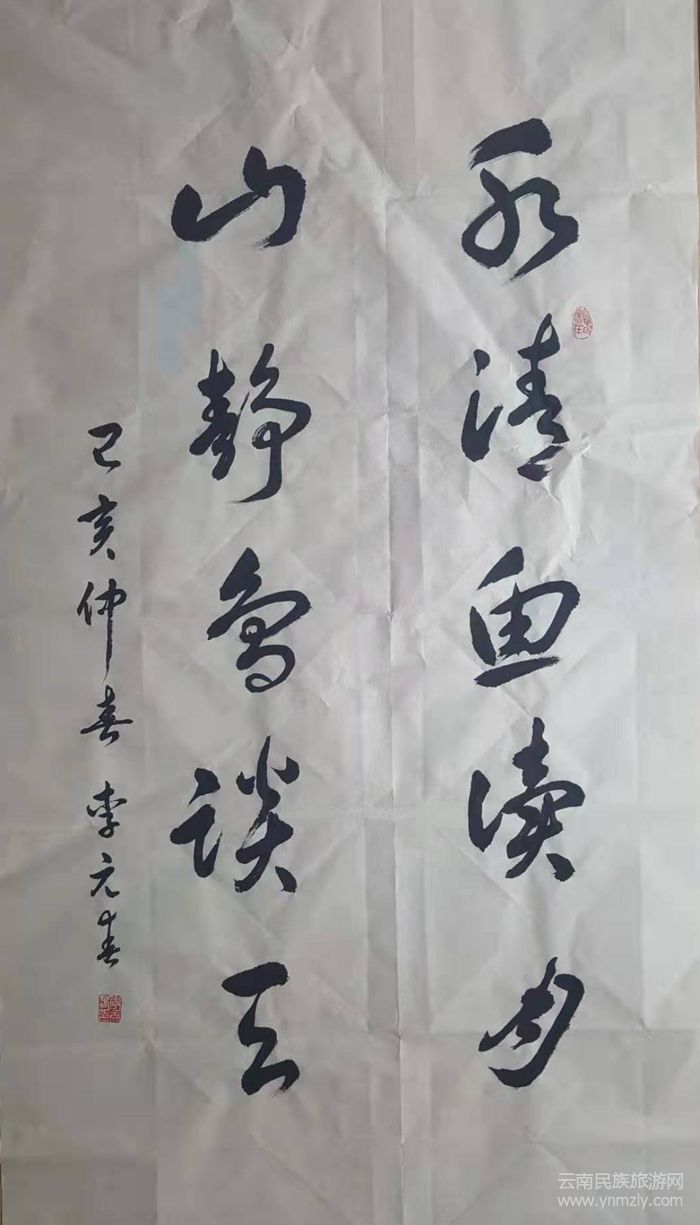 水清鱼读月
山静鸟谈天
己亥仲春 李元春
云南民族旅游网
www.ynmzly.com